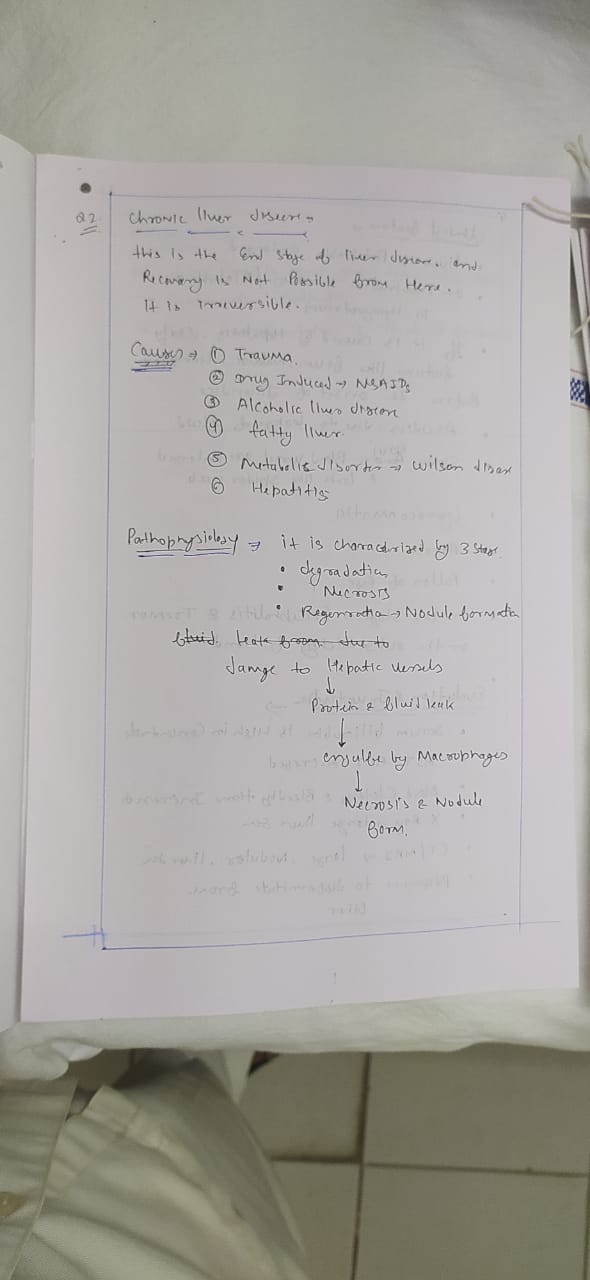 Q2. Chronic liver disease
this is the End stage of liver disease. and
Recovery is Not Possible from Here.
It is irreversible.
Causes → ① Trauma.
② Drug Induced → NSAIDs
③ Alcoholic liver disease
④ fatty liver.
⑤ Metabolic disorder → Wilson disease
⑥ Hepatitis
Pathophysiology → it is characterized by 3 stage.
• degradation
• Necrosis
• Regeneration → Nodule formation
fluid leak from due to
damge to Hepatic vessels
↓
Protein & fluid leak
↓
engulfe by Macrophages
↓
Necrosis & Nodule
form.